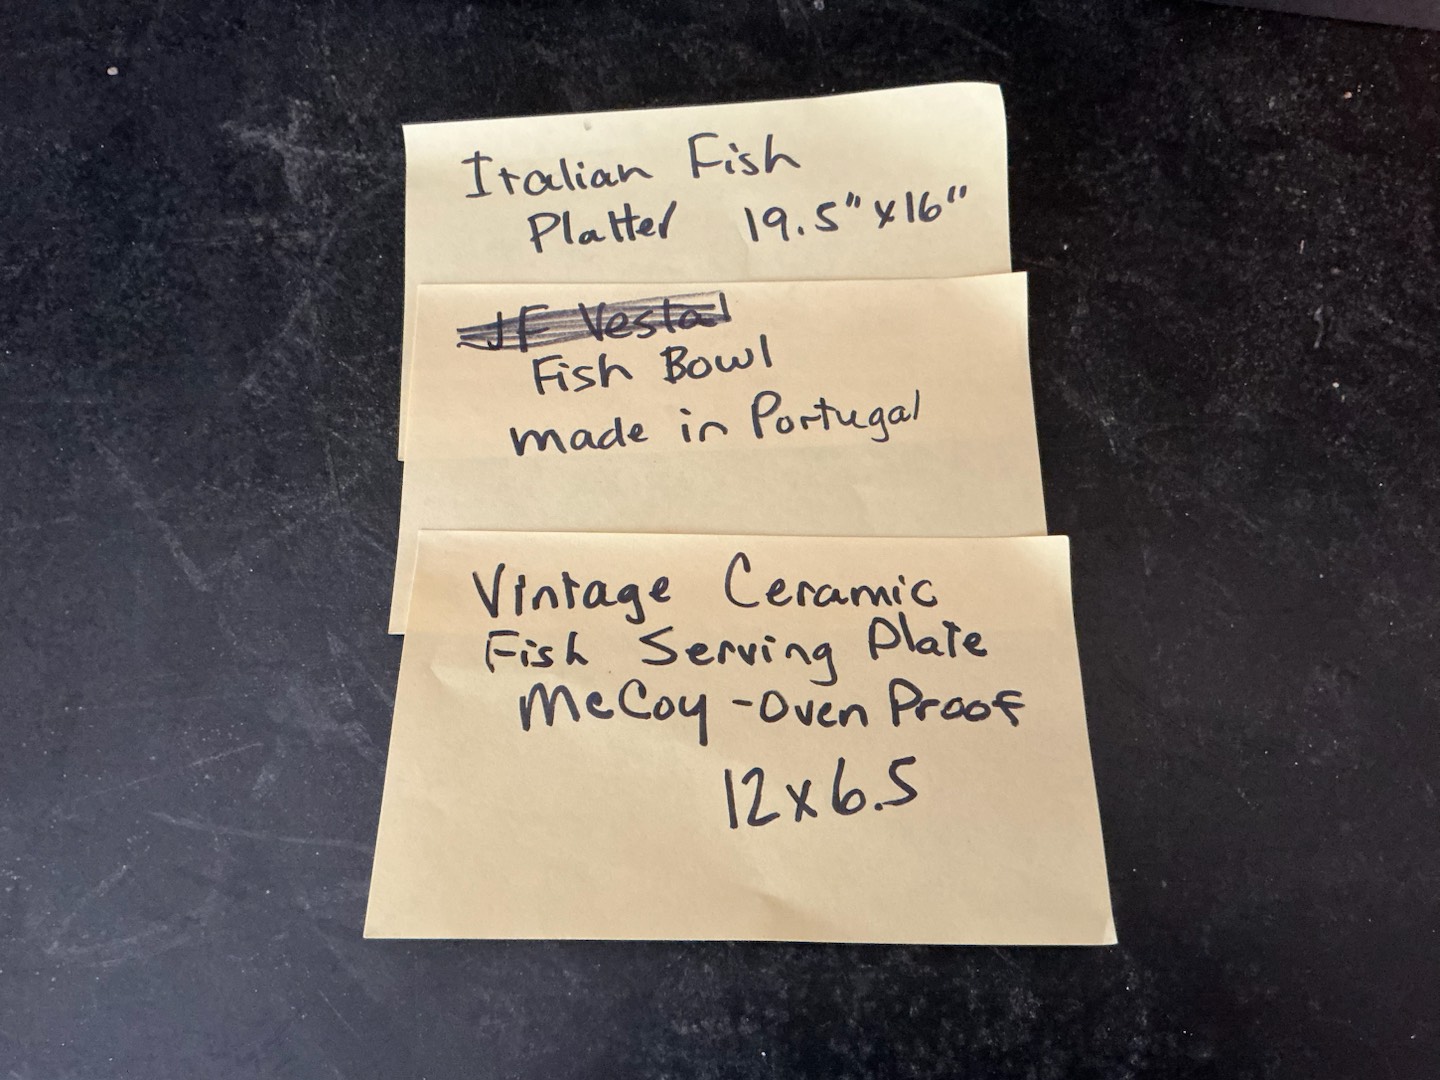 Italian Fish
Platter 19.5" x 16"
JF Vestal
Fish Bowl
made in Portugal
Vintage Ceramic
Fish Serving Plate
McCoy - Oven Proof
12x6.5